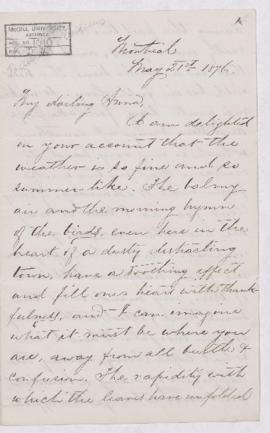 McGILL UNIVERSITY
ARCHIVES
Montreal
May 21st 1876.
My darling Anna,
I am delighted
on your account that the
weather is so fine and so
summer-like. The balmy
air and the morning hymn
of the birds, even here in the
heart of a dusty distracting
town, have a soothing effect
and fill one's heart with thank-
fulness, and I can imagine
what it must be where you
are, away from all bustle &
confusion. The rapidity with
which the leaves have unfolded